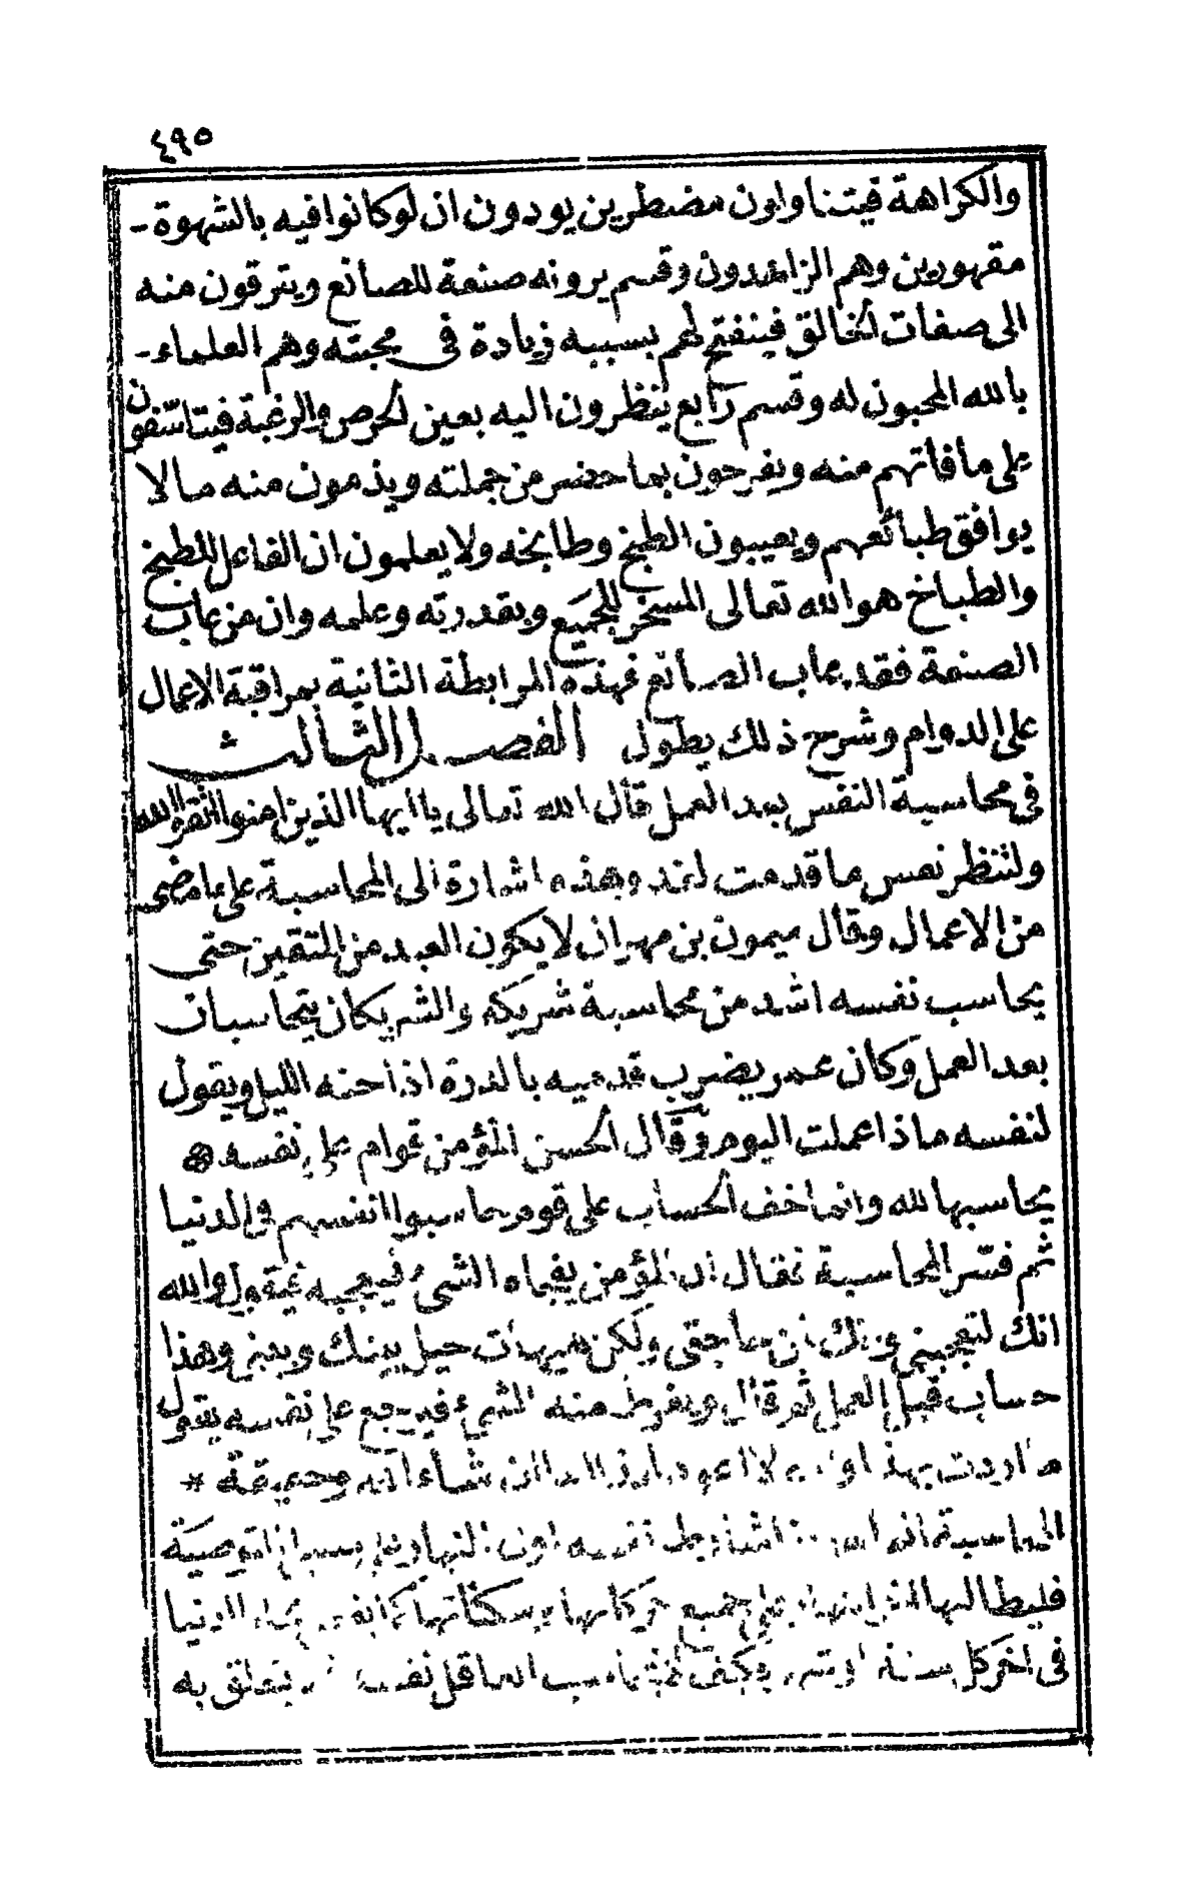 ٤٩٥
والكراهة فيتناولون مضطرين يودون ان لو كانوا فيه بالشهوة-
مقهورين وهم الزاهدون وقسم يرونه صنعة للصانع ويترقون منه
الى صفات الخالق فينفتح لهم بسببه زيادة فى محبته وهم العلماء-
بالله المحبون له وقسم رابع ينظرون اليه بعين الحرص والرغبة فيتاسّفون
على ما فاتهم منه ويفرحون بما حضر من جملته ويذمون منه ما لا
يوافق طبائعهم ويعيبون الطبخ وطابخه ولا يعلمون ان الفاعل للطبخ
والطباخ هو الله تعالى المسخر للجميع وبقدرته وعلمه وان من عاب
الصنعة فقد عاب الصانع فهذه المرابطة الثانية بمراقبة الاعمال
على الدوام وشرح ذلك يطول الفصل الثالث
فى محاسبة النفس بعد العمل قال الله تعالى يا ايها الذين امنوا اتقوا الله
ولتنظر نفس ما قدمت لغد وهذه اشارة الى المحاسبة على ما مضى
من الاعمال وقال ميمون بن مهران لا يكون العبد من المتقين حتى
يحاسب نفسه اشد من محاسبة شريكه والشريكان يتحاسبان
بعد العمل وكان عمر يضرب قدميه بالدرة اذا جنه الليل ويقول
لنفسه ماذا عملت اليوم وقال الحسن المؤمن قوام على نفسه
يحاسبها لله وانما خف الحساب على قوم حاسبوا انفسهم فى الدنيا
ثم فسّر المحاسبة فقال ان المؤمن يفجاه الشىء فيعجبه فيقول والله
انك لتعجبنى وانك من حاجتى ولكن هيهات حيل بينك وبينى وهذا
حساب قبل العمل ثم قال ويفرط منه الشىء فيرجع على نفسه يقول
ما اردت بهذا لا اعود ابدا ان شاء الله وحقيقة *
المحاسبة انه النهار التوصية
فليطالبها جميع حركاتها وسكناتها الدنيا
فى اخر كل سنة وكيف العاقل نفسه يتعلق به